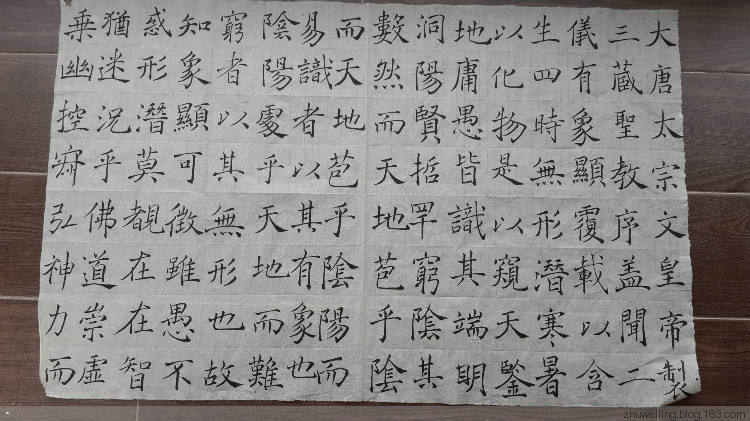 大唐太宗文皇帝製
三藏聖教序盖聞二
儀有象顯覆載以含
生四時無形潛寒暑
以化物是以窺天鑒
地庸愚皆識其端明
洞陽賢哲罕窮陰其
數然而天地苞乎陰
而天地苞乎陰陽而
易識者以其有象也
陰陽處乎天地而難
窮者以其無形也故
知象顯可徵雖愚不
惑形潛莫覩在在智
猶迷况乎佛道崇虛
乘幽控寂弘神力而
zhuweiling.blog.163.com